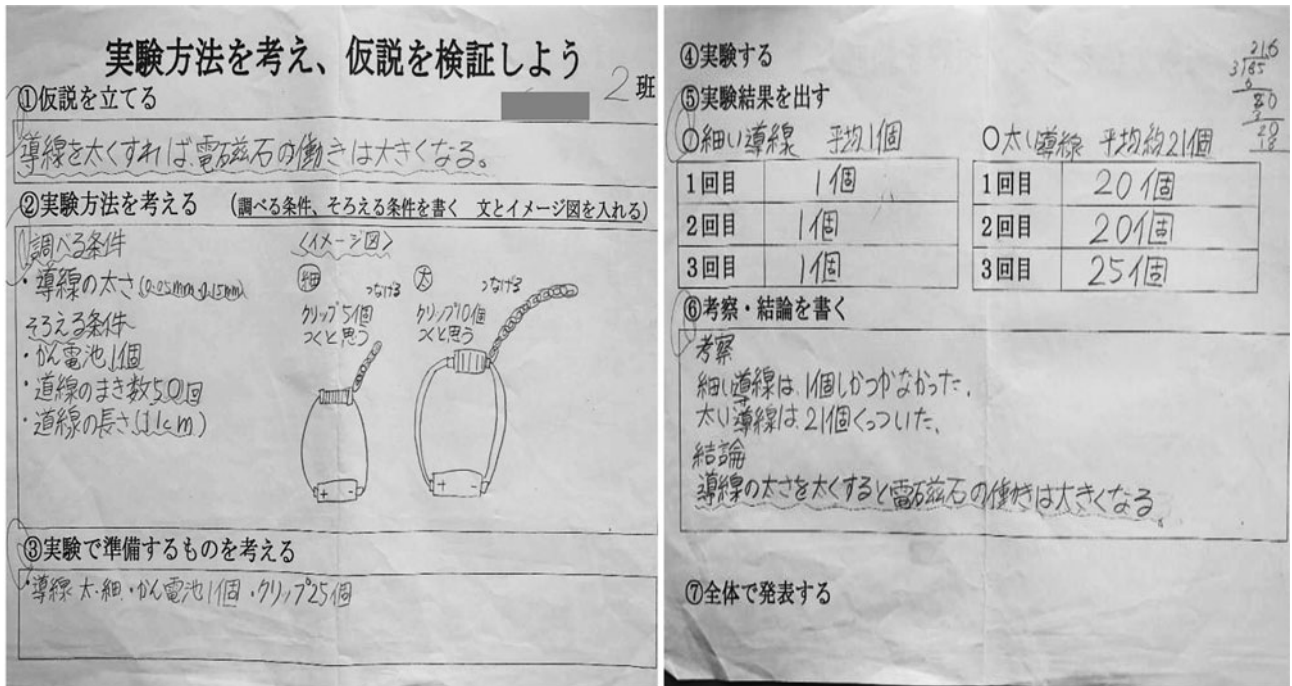 実験方法を考え、仮説を検証しよう
2班
①仮説を立てる
導線を太くすれば、電磁石の働きは大きくなる。
②実験方法を考える (調べる条件、そろえる条件を書く 文とイメージ図を入れる)
調べる条件
・導線の太さ(0.25mm、0.15mm)
そろえる条件
・かん電池1個
・道線のまき数50回
・道線の長さ(11cm)
〈イメージ図〉
細 つなげる
クリップ5個
つくと思う
+ -
太 つなげる
クリップ10個
つくと思う
+ -
③実験で準備するものを考える
・導線 太・細 ・かん電池1個 ・クリップ25個
④実験する
⑤実験結果を出す
○細い導線 平均1個
1回目 1個
2回目 1個
3回目 1個
○太い導線 平均約21個
1回目 20個
2回目 20個
3回目 25個
21.6
3 65
6
20
18
⑥考察・結論を書く
考察
細い導線は、1個しかつかなかった。
太い導線は、21個くっついた。
結論
導線の太さを太くすると電磁石の働きは大きくなる。
⑦全体で発表する